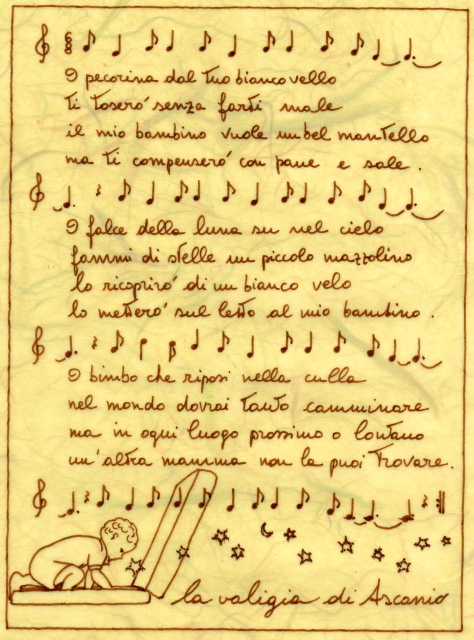 O pecorina dal tuo bianco vello
ti toserò senza farti male
il mio bambino vuole un bel mantello
ma ti compenserò con pane e sale.
O falce della luna su nel cielo
fammi di stelle un piccolo mazzolino
lo ricoprirò di un bianco velo
lo metterò sul letto al mio bambino.
O bimbo che riposi nella culla
nel mondo dovrai tanto camminare
ma in ogni luogo prossimo o lontano
un'altra mamma non la puoi trovare.
la valigia di Ascanio